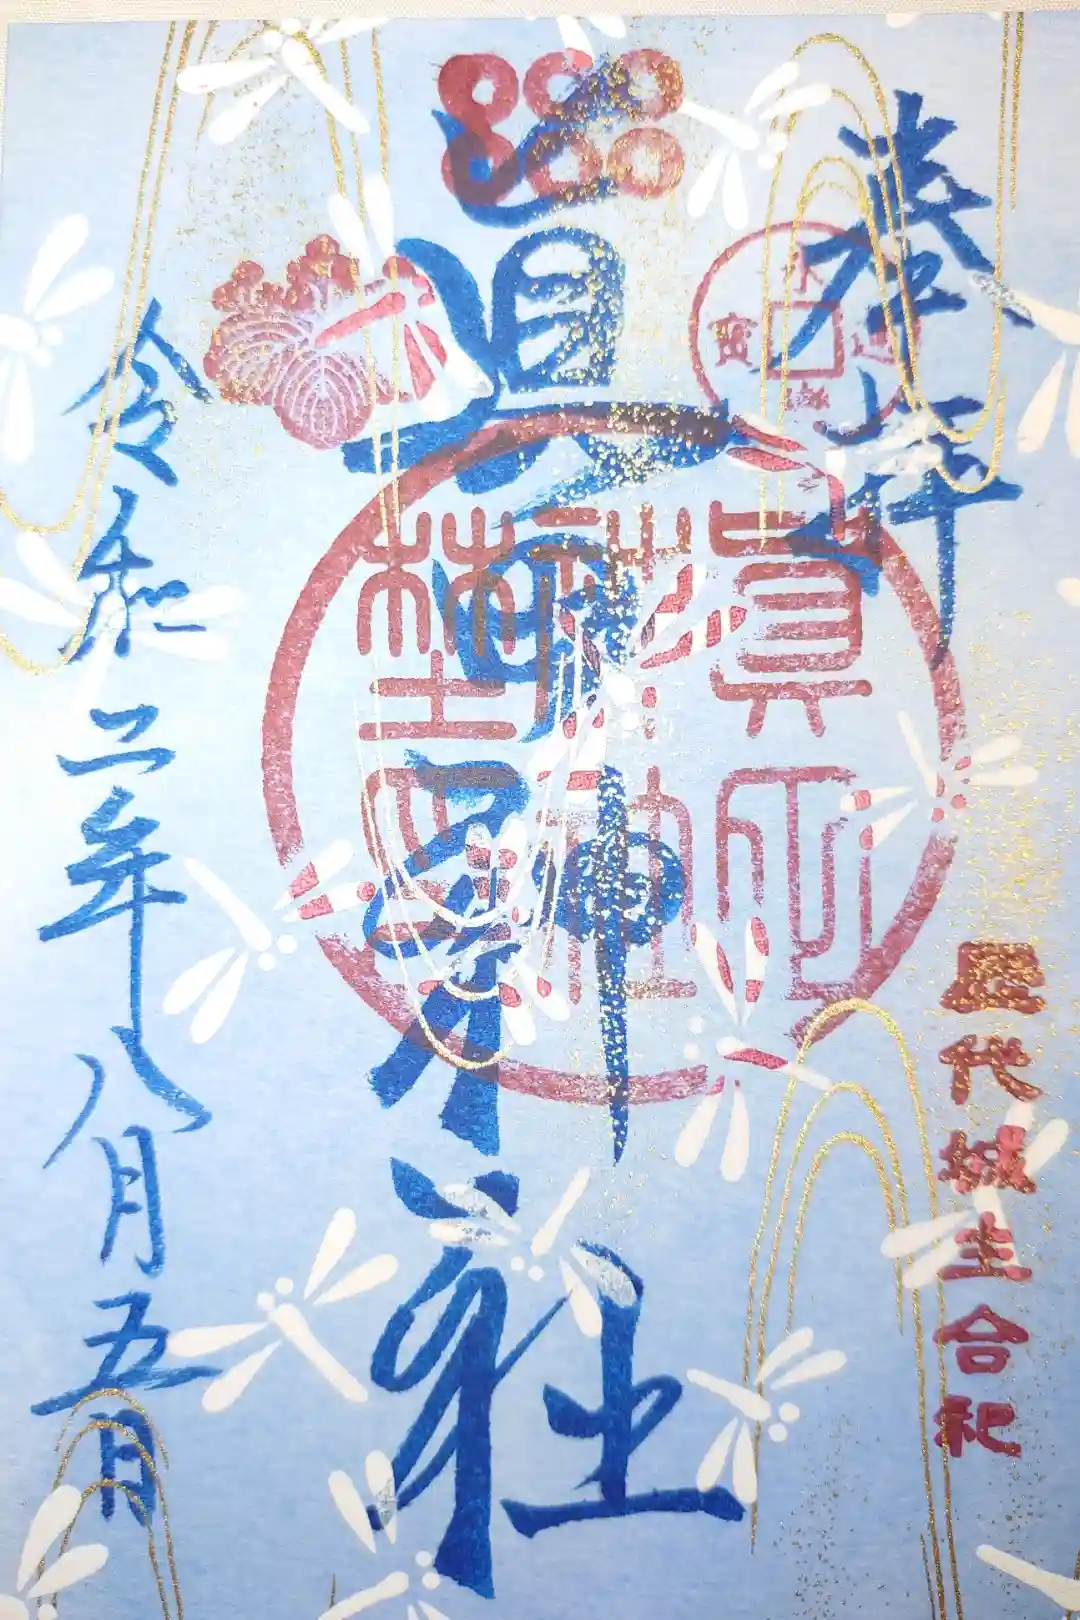 奉拝
歴代城主合祀
眞田神社
令和二年八月五日
永樂通寳
眞田
神社